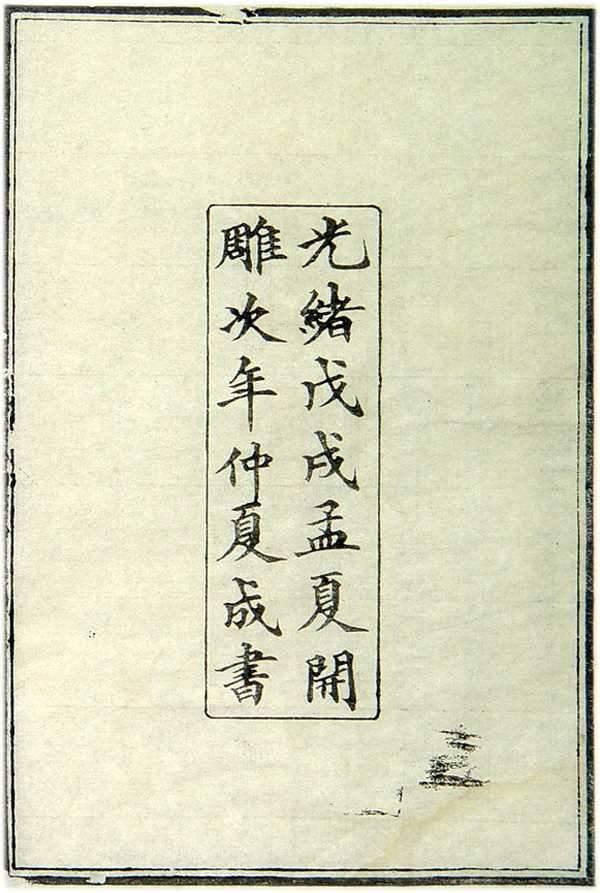 光緒戊戌孟夏開
雕次年仲夏成書